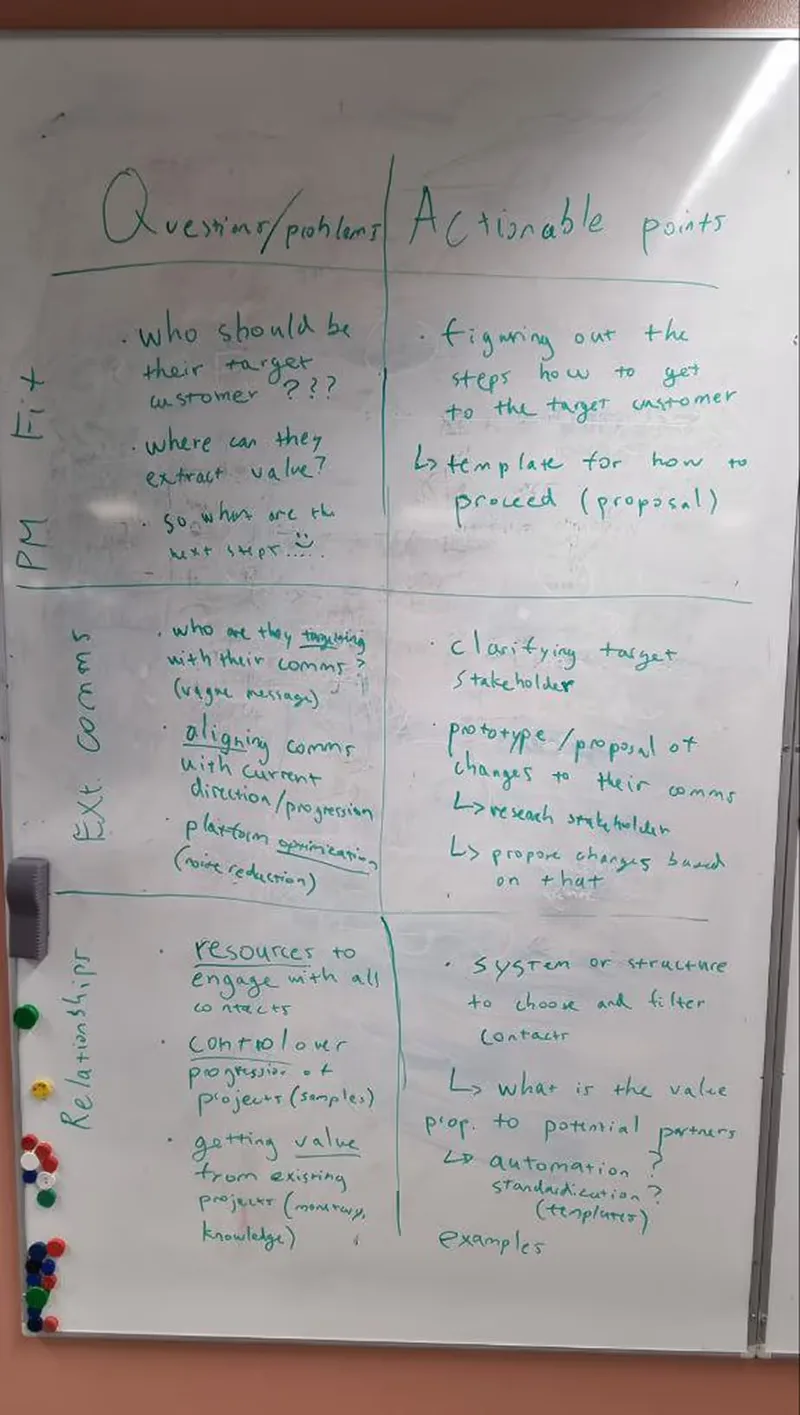 Questions/problems
Actionable points
PM Fit
· who should be
their target
customer ???
· where can they
extract value?
· so what are the
next steps.....
· figuring out the
steps how to get
to the target customer
↳ template for how to
proceed (proposal)
Ext. comms
· who are they targeting
with their comms?
(vague message)
· aligning comms
with current
direction/progression
· platform optimization
(noise reduction)
· clarifying target
stakeholder
· prototype/proposal of
changes to their comms
↳ research stakeholder
↳ propose changes based
on that
Relationships
· resources to
engage with all
contacts
· control over
progression of
projects (samples)
· getting value
from existing
projects (monetary,
knowledge)
· system or structure
to choose and filter
contacts
↳ what is the value
prop. to potential partners
↳ automation?
standardization?
(templates)
examples